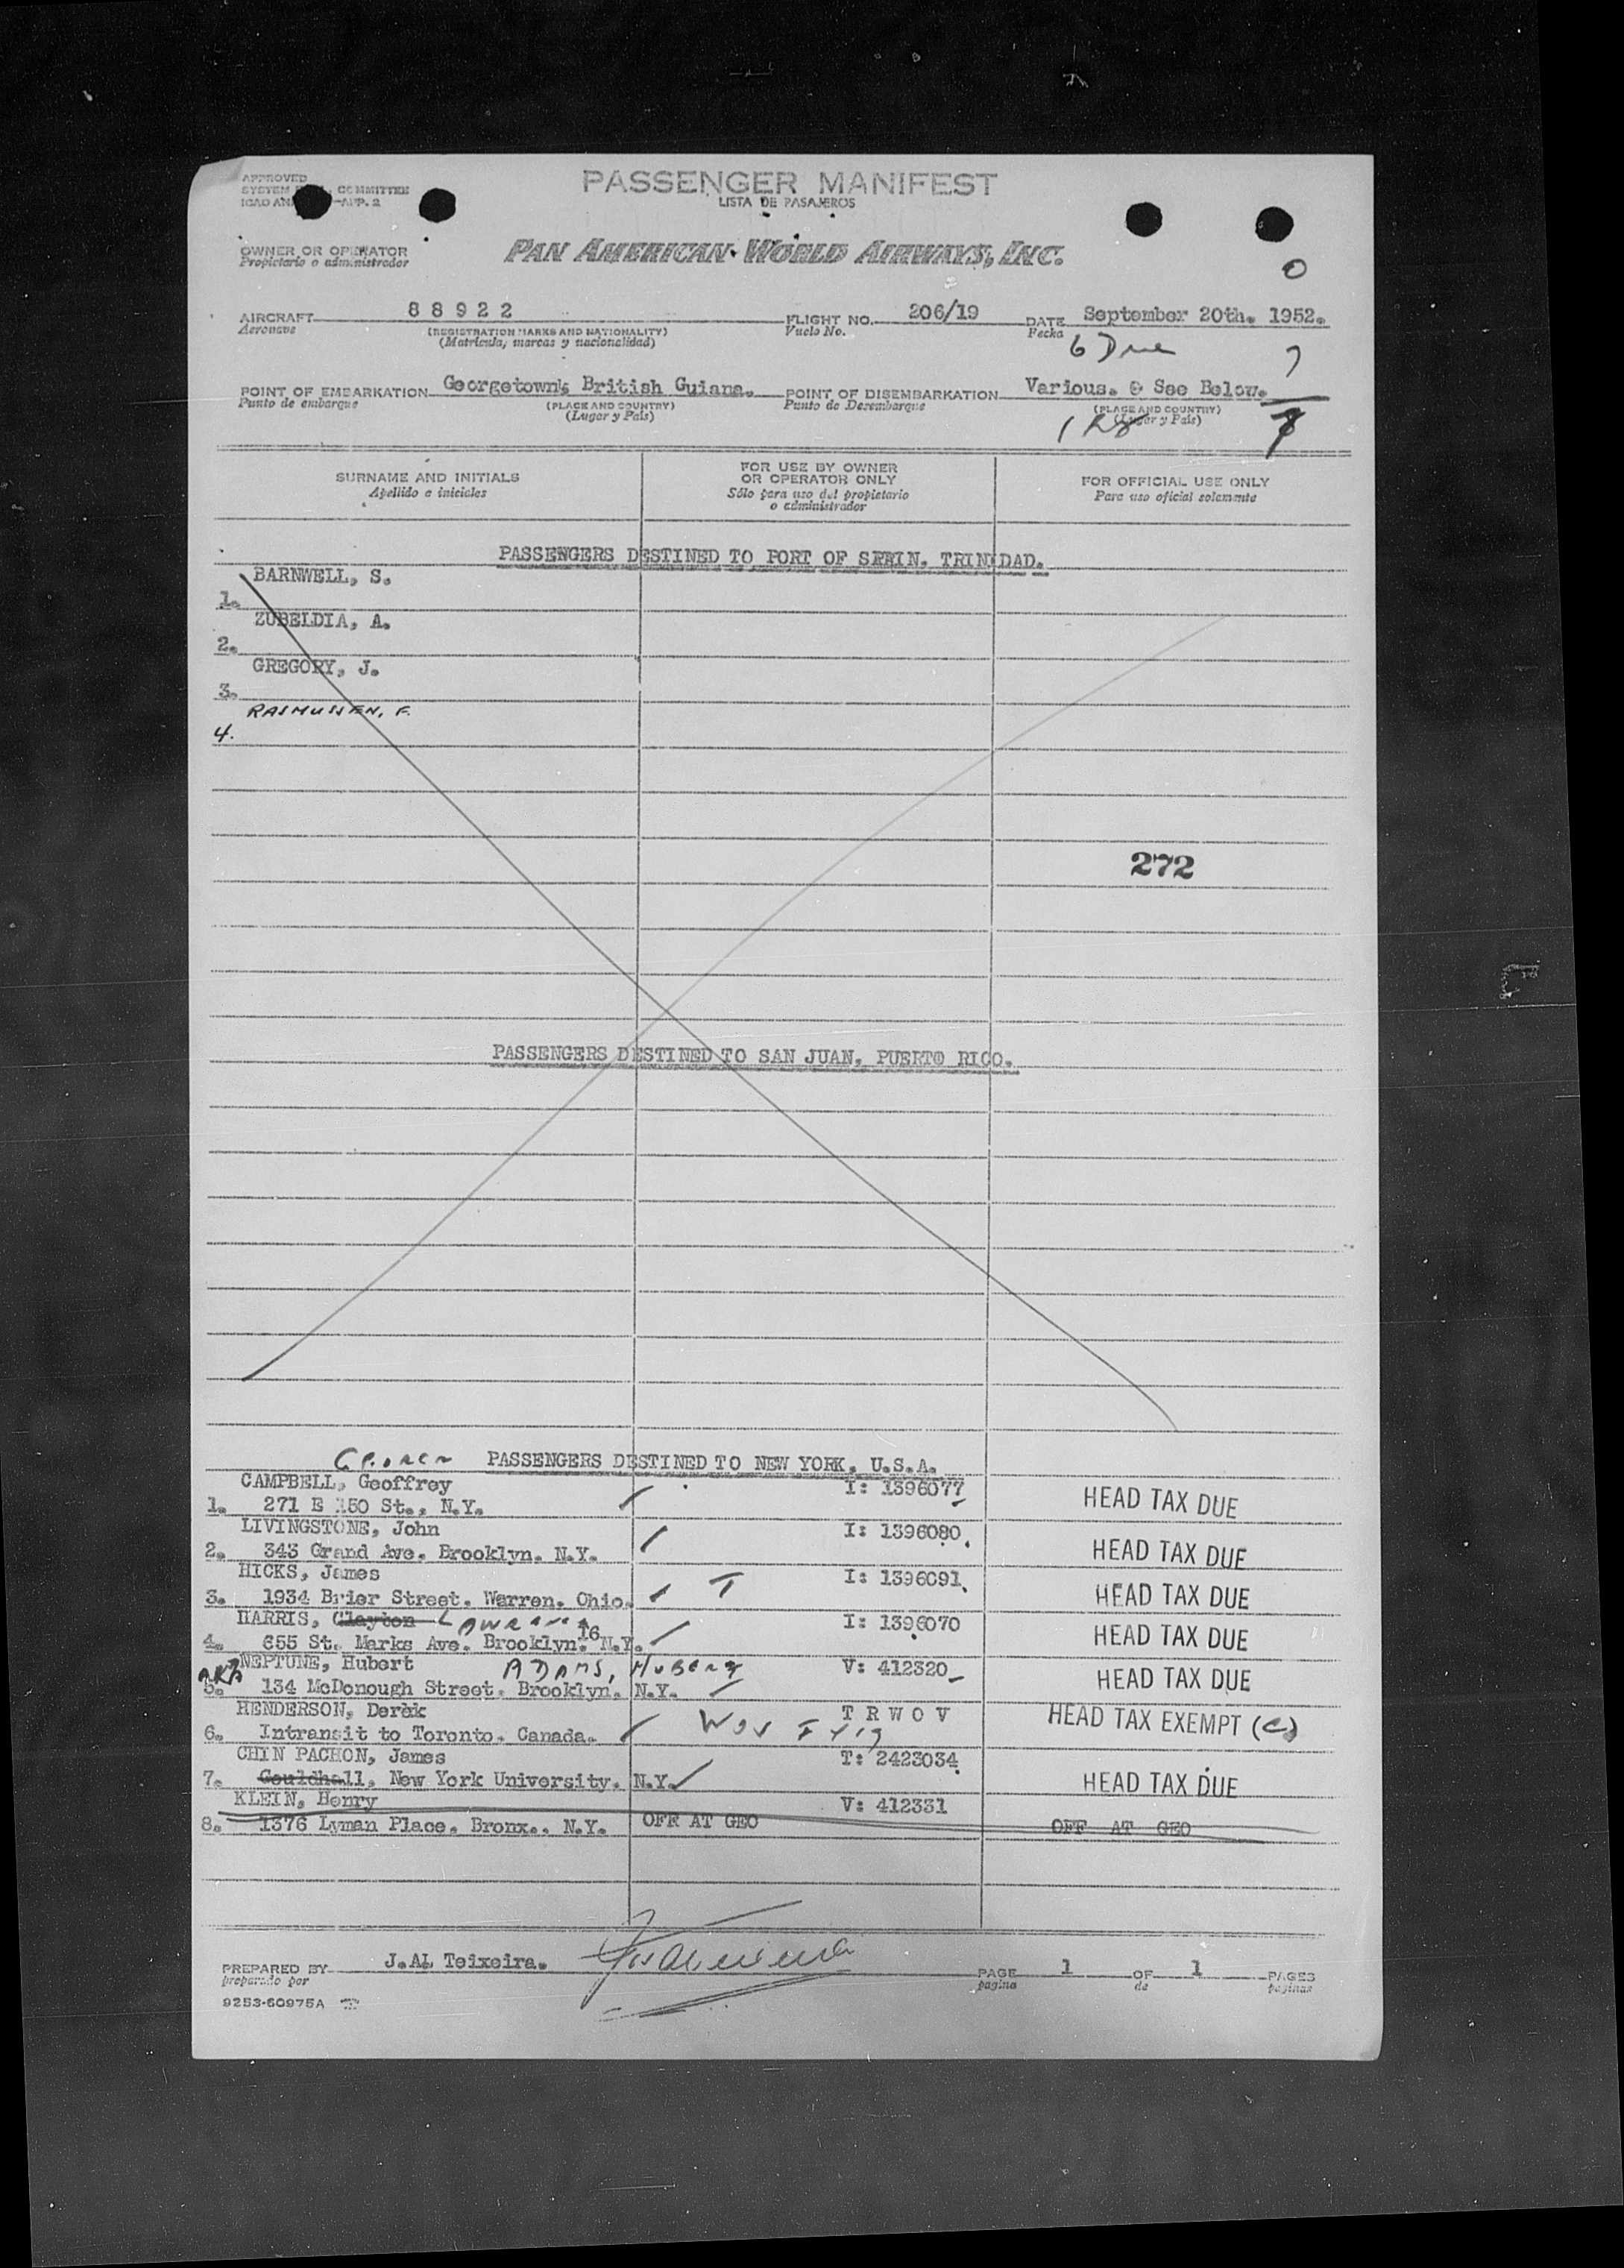 APPROVED
SYSTEM COMMITTEE
ICAO APP. 2
PASSENGER MANIFEST
LISTA DE PASAJEROS
OWNER OR OPERATOR
Propietario o administrador
PAN AMERICAN WORLD AIRWAYS, INC.
0
AIRCRAFT 88922 FLIGHT NO. 206/19 DATE September 20th. 1952.
Aeronave (REGISTRATION MARKS AND NATIONALITY) Vuelo No. Fecha
(Matricula, marcas y nacionalidad)
6 Due 7
POINT OF EMBARKATION Georgetown, British Guiana. POINT OF DISEMBARKATION Various. See Below.
Punto de embarque (PLACE AND COUNTRY) Punto de Desembarque (PLACE AND COUNTRY)
(Lugar y País) (Lugar y País)
SURNAME AND INITIALS
Apellido e iniciales
FOR USE BY OWNER
OR OPERATOR ONLY
Sólo para uso del propietario
o administrador
FOR OFFICIAL USE ONLY
Para uso oficial solamente
PASSENGERS DESTINED TO PORT OF SPEIN. TRINIDAD.
BARNWELL, S.
1.
ZUBELDIA, A.
2.
GREGORY, J.
3.
RASMUSSEN, F.
4.
272
PASSENGERS DESTINED TO SAN JUAN, PUERTO RICO.
PASSENGERS DESTINED TO NEW YORK, U.S.A.
CAMPBELL, Geoffrey I: 1396077
1. 271 E 150 St., N.Y. HEAD TAX DUE
LIVINGSTONE, John I: 1396080
2. 343 Grand Ave. Brooklyn. N.Y. HEAD TAX DUE
HICKS, James I: 1396091
3. 1934 Brier Street. Warren. Ohio. T HEAD TAX DUE
HARRIS, Clayton I: 1396070
4. 655 St. Marks Ave. Brooklyn. 16 N.Y. HEAD TAX DUE
NEPTUNE, Hubert ADAMS, HUBERT V: 412320
AKA
5. 134 McDonough Street. Brooklyn. N.Y. HEAD TAX DUE
HENDERSON, Derek T R W O V
6. Intransit to Toronto. Canada. HEAD TAX EXEMPT (C)
CHIN PACHON, James T: 2423034
7. Gouldhall, New York University. N.Y. HEAD TAX DUE
KLEIN, Henry V: 412331
8. 1376 Lyman Place. Bronx.. N.Y. OFF AT GEO OFF AT GEO
PREPARED BY J.AL Teixeira. PAGE 1 OF 1 PAGES
preparado por pagina de paginas
9253-60975A